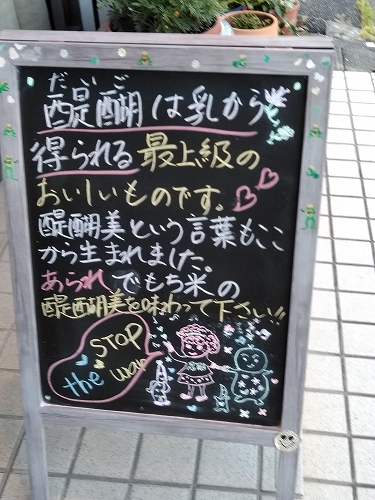 だいご
醍醐は乳から
得られる最上級の
おいしいものです。
醍醐美という言葉もここ
から生まれました。
あられでもち米の
醍醐美を味わって下さい!!
STOP
the war